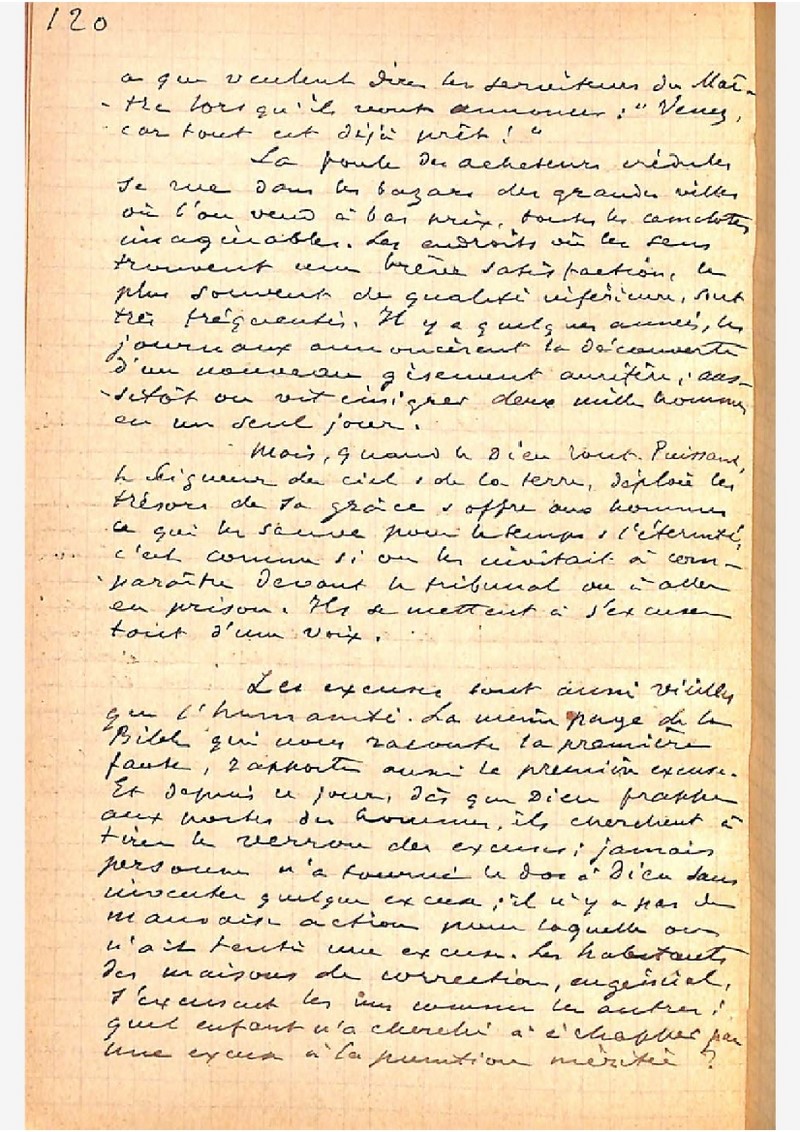 120
ce que veulent dire les serviteurs du Maî-
tre lorsqu'ils vont annoncer : "Venez,
car tout est déjà prêt ! "
La foule des acheteurs crédules
se rue dans les bazars des grandes villes
où l'on vend à bas prix, toutes les camelotes
imaginables. Les endroits où les sens
trouvent une brève satisfaction, le
plus souvent de qualité inférieure, sont
très fréquentés. Il y a quelques années, les
journaux annoncèrent la découverte
d'un nouveau gisement aurifère ; aus-
sitôt on vit émigrer deux mille hommes
en un seul jour.
Mais, quand le Dieu Tout-Puissant,
le Seigneur du ciel & de la terre, déploie les
trésors de sa grâce & offre aux hommes
ce qui les sauve pour le temps & l'éternité,
c'est comme si on les invitait à com-
paraître devant le tribunal ou à aller
en prison. Ils se mettent à s'excuser
tout d'une voix.
Les excuses sont aussi vieilles
que l'humanité. La même page de la
Bible qui nous raconte la première
faute, rapporte aussi la première excuse.
Et depuis ce jour, dès que Dieu frappe
aux portes des hommes, ils cherchent à
tirer le verrou des excuses ; jamais
personne n'a tourné le dos à Dieu sans
inventer quelque excuse ; il n'y a pas de
mauvaise action pour laquelle on
n'ait tenté une excuse. Les habitants
des maisons de correction, en général,
s'excusent les uns comme les autres ;
quel enfant n'a cherché à échapper par
une excuse à la punition méritée ?